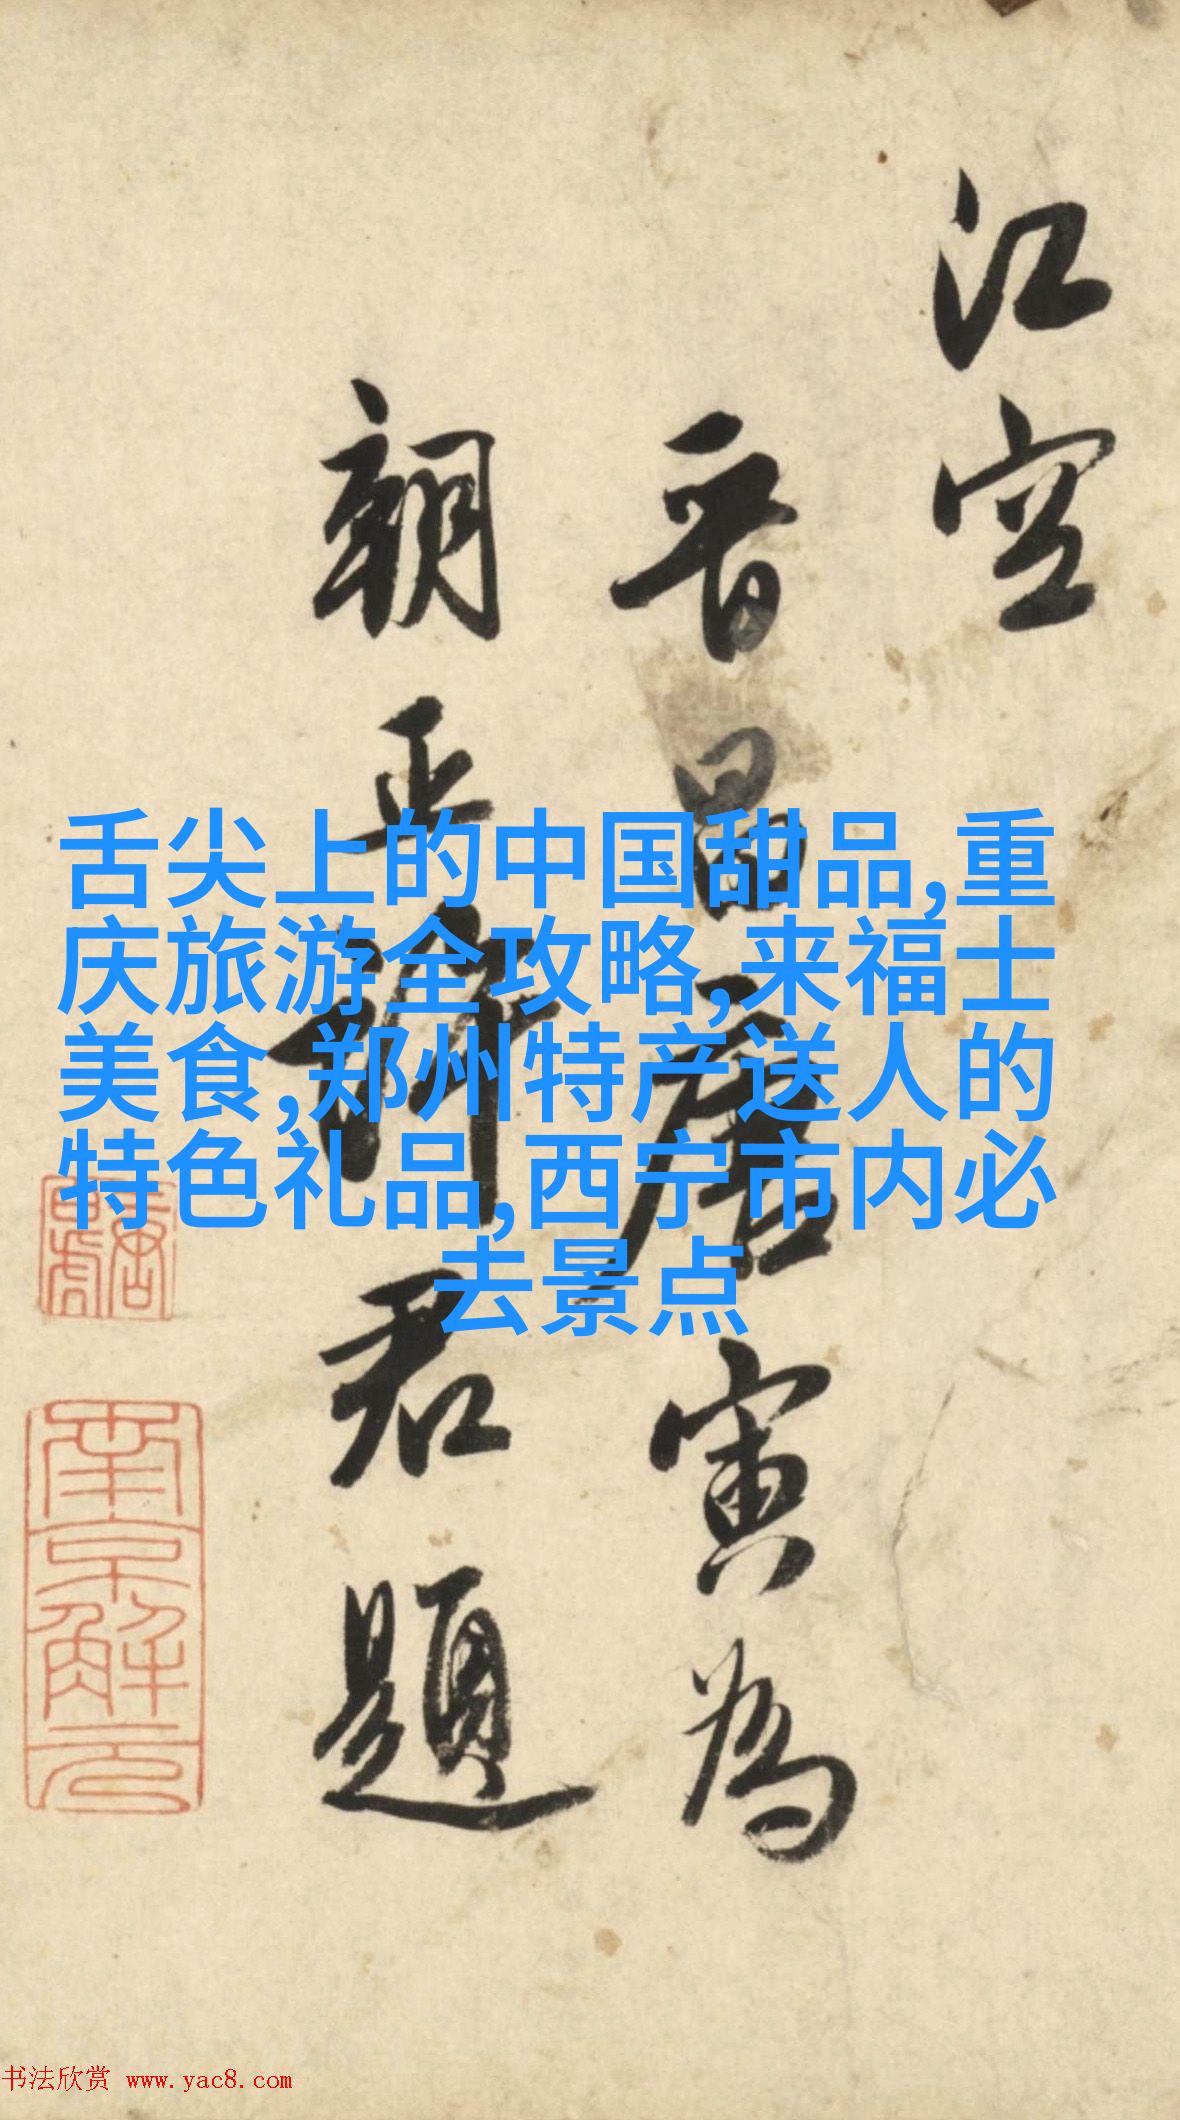 江空
晋昌唐寅为
朝正谢君题
舌尖上的中国甜品,重
庆旅游全攻略,来福士
美食,郑州特产送人的
特色礼品,西宁市内必
去景点
南京解元
书法欣赏 www.yac8.com